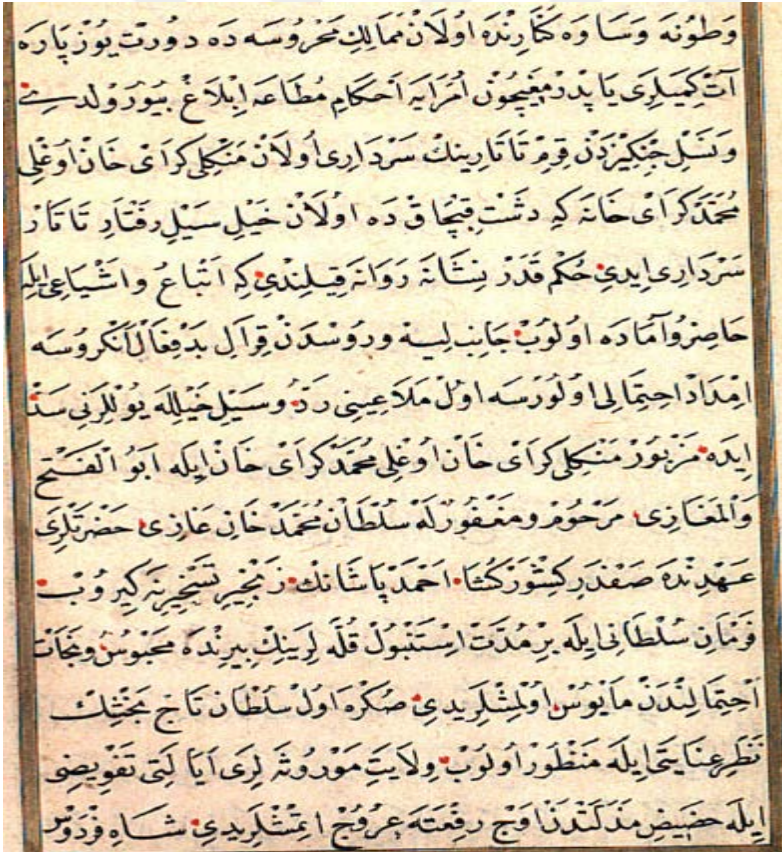 وَطُونَه وَسَاوَه كَنَارِنْدَه اُولَانْ مَمَالِكِ مَحْرُوسَه دَه دُورْت يُوزْ پَارَه
آتْ كَمِيلَرِى يَاپْدِرْمَغِيچُونْ اُمَرَايَه اَحْكَامِ مُطَاعَه اِبْلَاغْ بُيُورُولدِى
وَنَسْلِ جَنْكِيزْدَنْ قِرِمْ تَاتَارِينِكْ سَرْدَارِى اُولَانْ مَنْكِلِى كَرَاىْ خَانْ اُوغْلِى
مُحَمَّدْ كَرَاىْ خَانَه كِه دَشْتِ قِبْچَاقْ دَه اُولَانْ خَيْلِ سَيْلِ رَفْتَارِ تَاتَارْ
سَرْدَارِى اِيدِى حُكْمِ قَدَرْ نِشَانَه رَوَانَه قِيلِنْدِى كِه اَتْبَاعُ وَاَشْيَاعِى اِيلَه
حَاضِرُ وآمَادَه اُولُوبْ جَانِبِ لِيه وَرُوسْدَنْ قِرَالِ بَدْفِعَالِ اَنْكُرُوسَه
اِمْدَادْ اِحْتِمَالِى اُولُورْسَه اُولْ مَلَاعِينِى رَدُّ وسَيْلِ خَيْلِلَه يُوللَرِنِى سَدّ
اِيدَه مَزْبُورْ مَنْكِلِى كَرَاىْ خَانْ اُوغْلِى مُحَمَّدْ كَرَاىْ خَانْ اِيلَه اَبُو الْفَتْحِ
وَالْمَغَازِى مَرْحُومْ ومَغْفُورٌ لَهْ سُلْطَانْ مُحَمَّدْ خَانِ غَازِى حَضْرَتْلَرِى
عَهْدِنْدَه صَفْدَرِ كِشْوَرْ كُشَا اَحْمَدْ پَاشَانِكْ زَنْجِيرِ تَسْخِيرِنَه كِيرُوبْ
فَرْمَانِ سُلْطَانِى اِيلَه بِرْ مُدَّتْ اِسْتَنْبُولْ قُلَّه لَرِينِكْ بِيرِنْدَه مَحْبُوسْ ونَجَاتْ
اِحْتِمَالِنْدَنْ مَأيُوسْ اُولْمِشْلَرِيدِى صُكْرَه اُولْ سُلْطَانِ تَاجْ بَخْشِكْ
نَظَرِ عِنَايَتِى اِيلَه مَنْظُورْ اُولُوبْ وِلَايَتِ مَوْرُوثَه لَرِى اَيَالَتِى تَفْوِيضِى
اِيلَه حَضِيضِ مَذَلَّتْدَنْ اَوْجِ رِفْعَتَه عُرُوجْ اِتْمِشْلَرِيدِى شَاهِ فِرْدَوْسْ